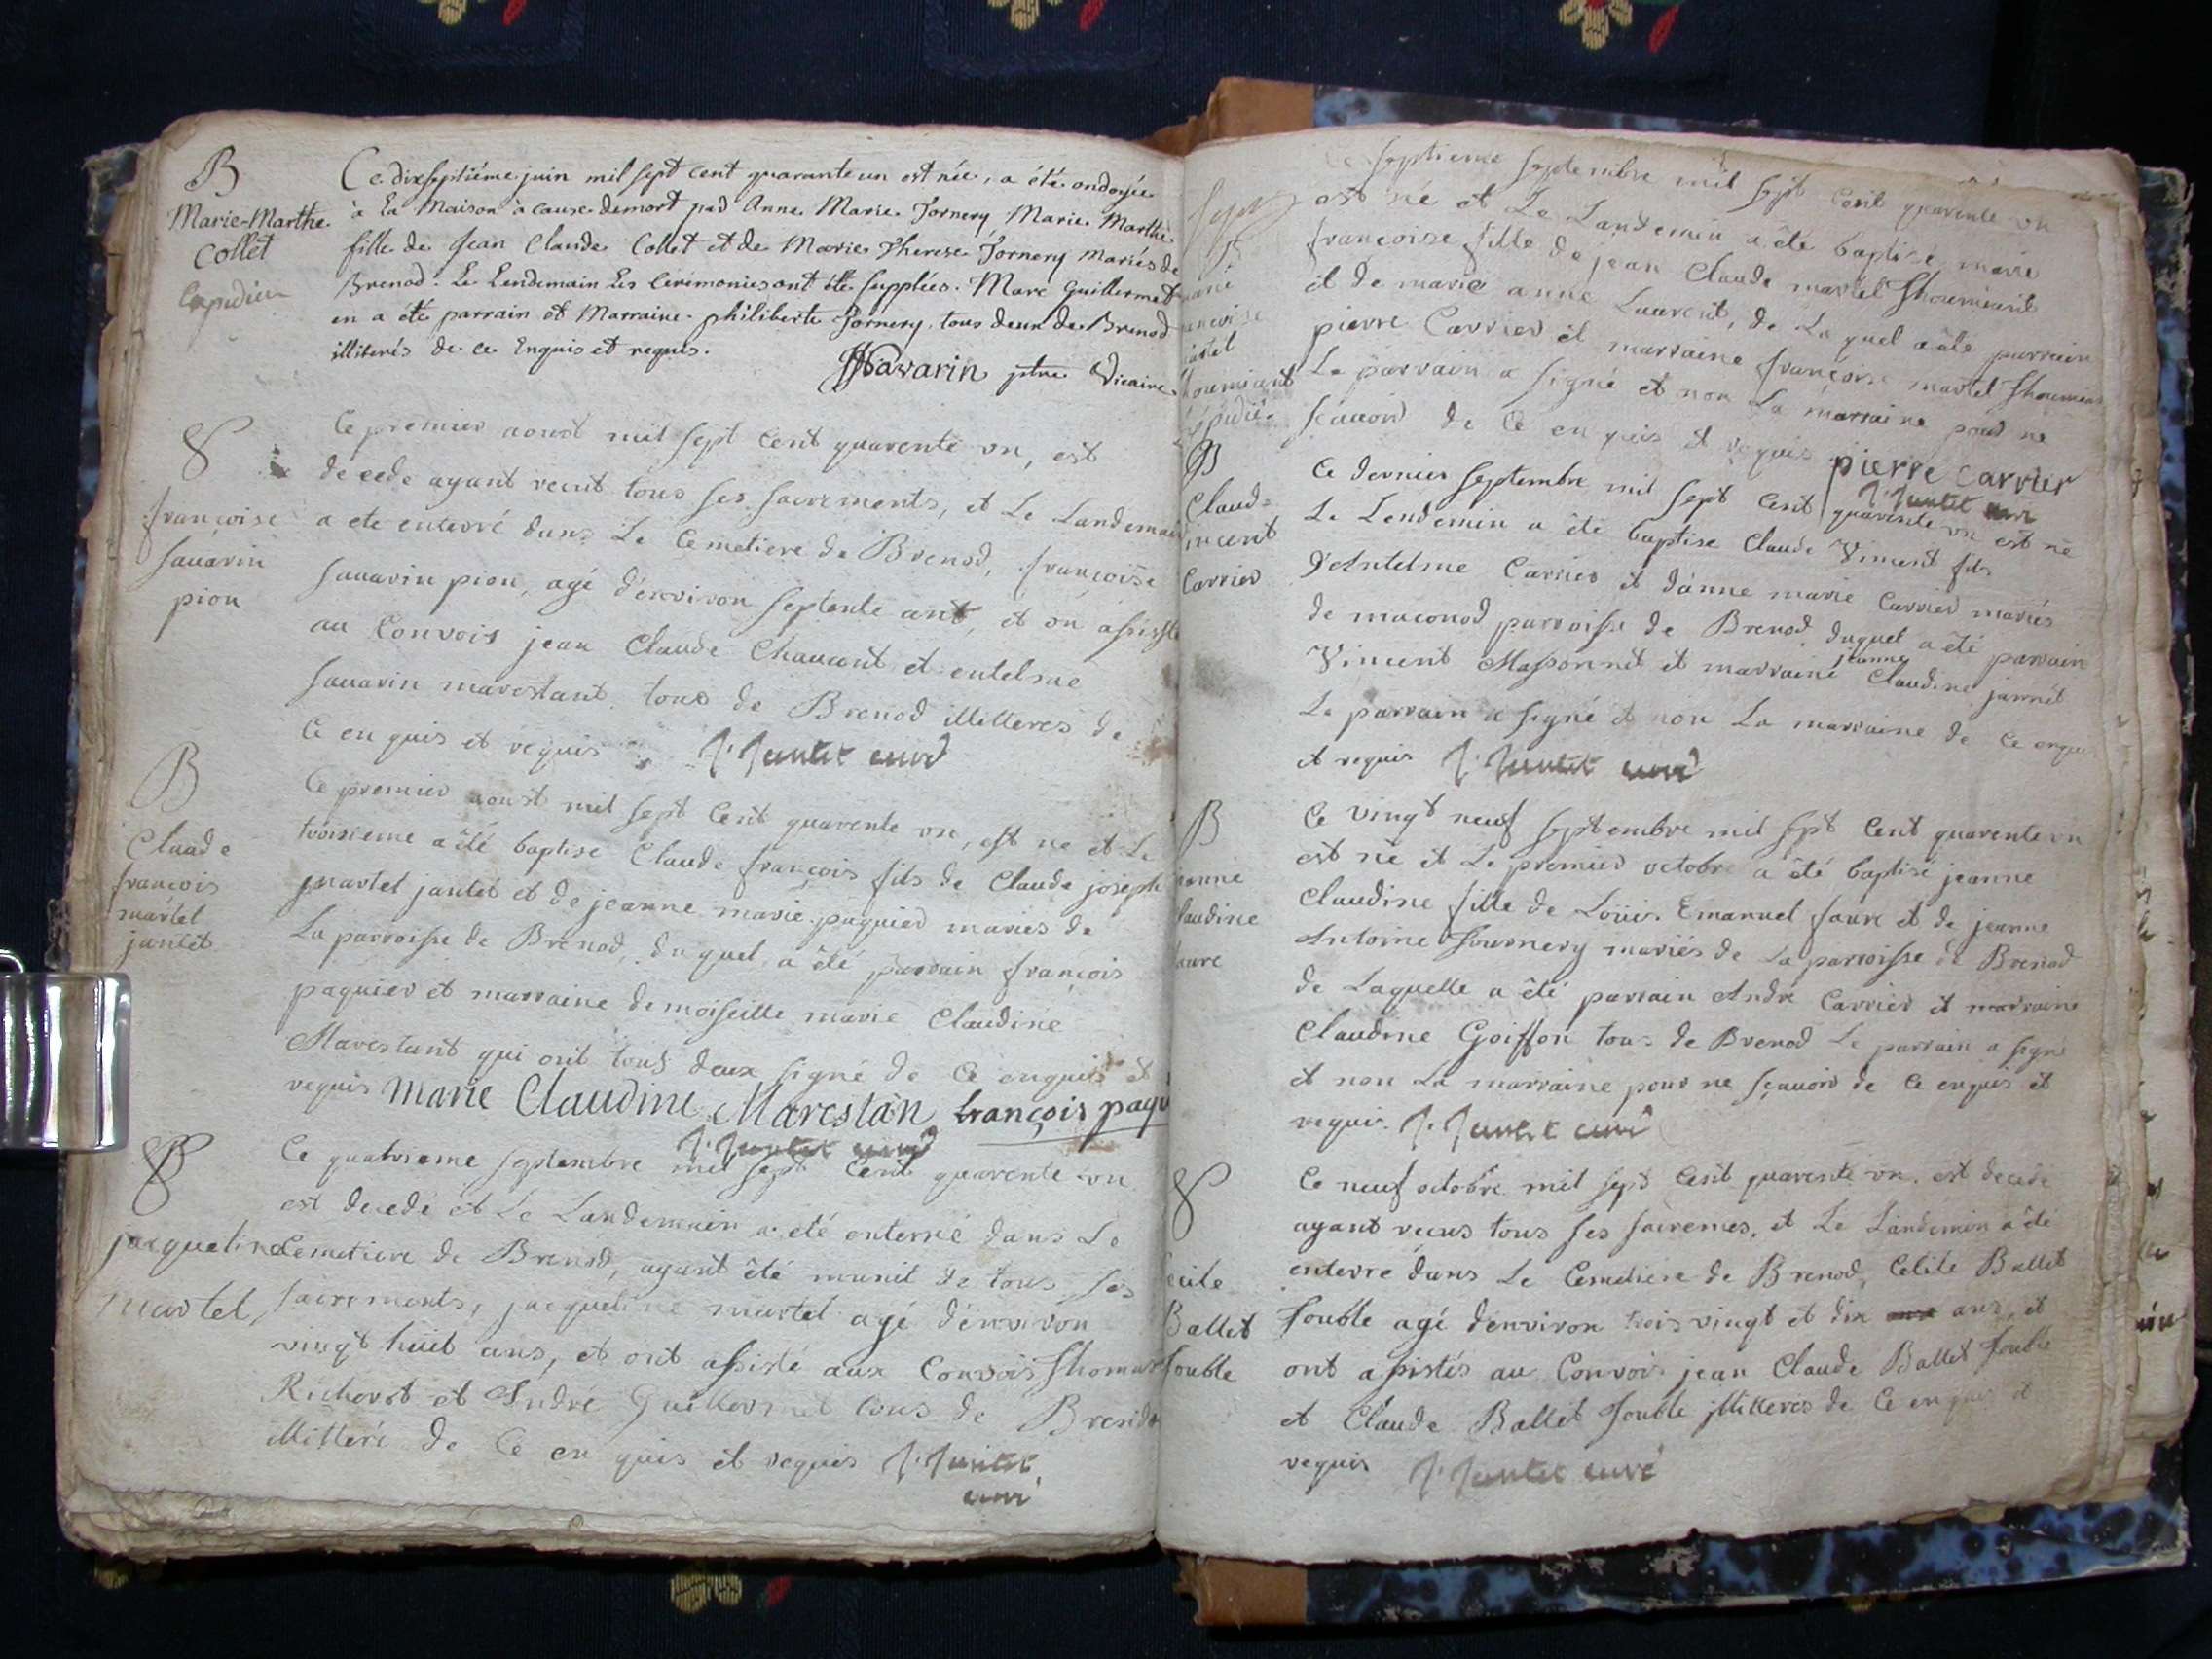 B
Marie-Marthe
Collet
Expediée
Ce dixseptiéme juin mil sept cent quarante un est née, a été ondoyée
à la Maison à cause demort par Anne Marie Fornery Marie Marthe
fille de Jean Claude Collet et de Marie Therese Fornery Mariés de
Brenod. Le Lendemain Les Cérémonies ont été supplées. Marc Guillermet
en a été parrain et Marraine philiberte Fornery tous deux de Brenod
illiterés de ce Enquis et requis.
Savarin ptre Vicaire
françoise
sauarin
pion
Ce premier aoust mil sept Cent quarente un, est
decede ayant recut tous ses sacrements, et Le Landemain
a ete enterré dans Le Cemetiere de Brenod, françoise
sauarin pion, agé d'environ septente ans, et on assiste
au Convois jean Claude Chaucout et entelme
sauarin marestant tous de Brenod illitteres de
Ce en quis et requis J. Jantet curé
B
Claude
françois
martel
jantet
Ce premier aoust mil sept Cent quarente un, est ne et Le
troisieme a été baptisé Claude françois fils de Claude joseph
martel jantet et de jeanne marie paquier mariés de
La parroisse de Brenod, duquel a été parrain françois
paquier et marraine demoiseille marie Claudine
Marestant qui ont tous deux signé de Ce enquis et
requis Marie Claudine Marestan françois paqu
J. Jantet curé
jacqueline
martel
Ce quatrieme septembre mil sept Cent quarente un
est decede et Le Landemain a été enterré dans Le
Cemetiere de Brenod, ayant été munit de tous ses
sacrements, jacqueline martel agé d'environ
vingt huit ans, et ont assisté aux Convois Thomas
Richerot et André Guillermet tous de Brenod
illitteré de Ce en quis et requis J. Jantet
curé
septieme septembre mil sept Cent quarente un
est né et Le Landemin a été baptisé marie
françoise fille de jean Claude martel Thoumiant
et de marie anne Laurent, de La quel a été parrain
pierre Carrier et marraine françoise martel Thoumiant
Le parrain a signé et non La marraine pour ne
sçauoir de Ce en quis et requis pierre Carrier
J. Jantet curé
B
Claude
incent
Carrier
Ce dernier septembre mil sept Cent quarente un est né
Le Lendemin a été baptise Claude Vincent fils
d'Antelme Carrier et d'anne marie Carrier mariés
de maconod parroisse de Brenod duquel a été parrain
Vincent Massonnet et marraine jeanne Claudine jarnet
Le parrain a signé et non La marraine de Ce enquis
et requis J. Jantet curé
B
eanne
laudine
aure
Ce vingt neuf septembre mil sept Cent quarente un
est né et Le premier octobre a été baptisé jeanne
Claudine fille de Loüis Emanuel faure et de jeanne
Antoine Fournery mariés de La parroisse de Brenod
de Laquelle a été parrain André Carrier et marraine
Claudine Goiffon tous de Brenod Le parrain a signé
et non La marraine pour ne sçauoir de Ce enquis et
requis. J. Jantet curé
ecile
Ballet
Fouble
Ce neuf octobre mil sept Cent quarente un, est decede
ayant recus tous ses sacremes, et Le Landemin a été
enterré dans Le Cemetiere de Brenod, Celile Ballet
Fouble agé d'environ trois vingt et dix ans, et
ont assistés au Convois jean Claude Ballet Fouble
et Claude Ballet Fouble illitterés de Ce enquis et
requis J. Jantet curé